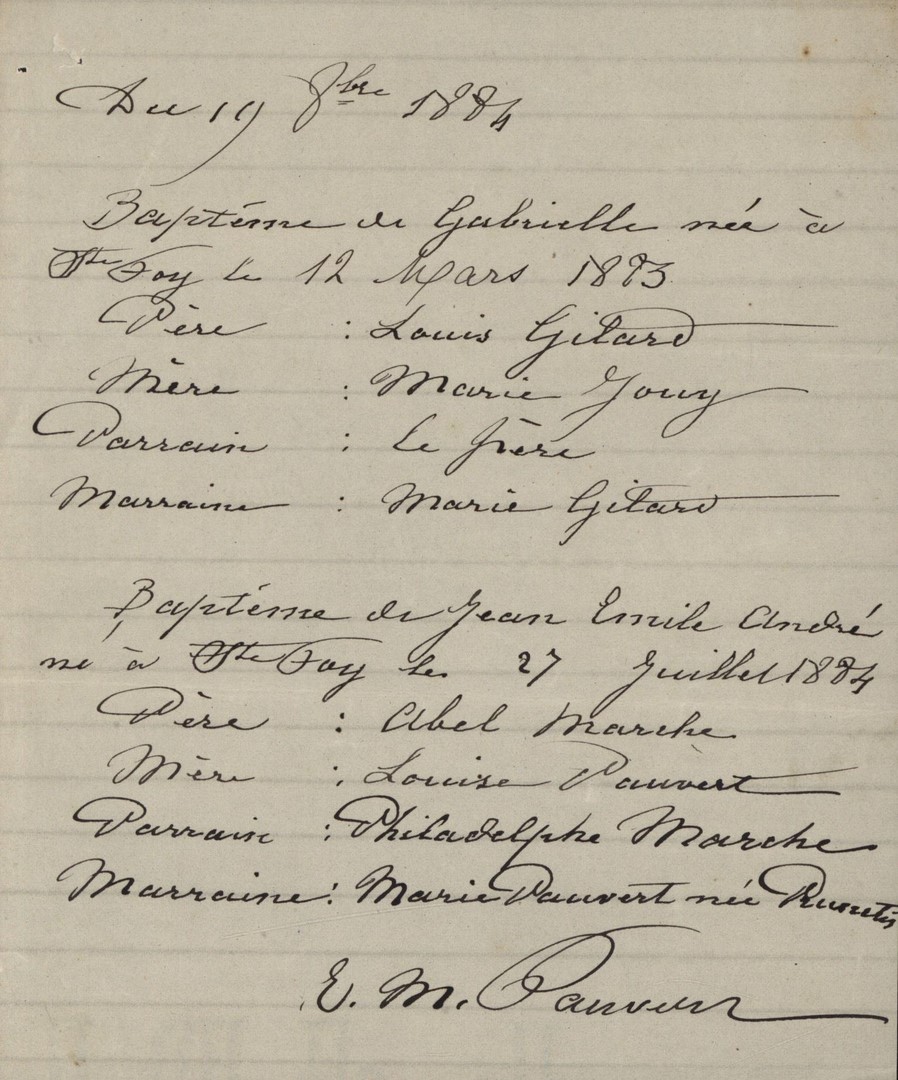 Du 19 8bre 1884
Baptéme de Gabrielle née à
Ste Foy le 12 Mars 1883
Père : Louis Gitard
Mère : Marie Jouy
Parrain : le frère
Marraine : Marie Gitard
Baptéme de Jean Emile André
né à Ste Foy le 27 Juillet 1884
Père : Abel Marche
Mère : Louise Pauvert
Parrain : Philadelphe Marche
Marraine : Marie Pauvert née
E. M. Pauvert